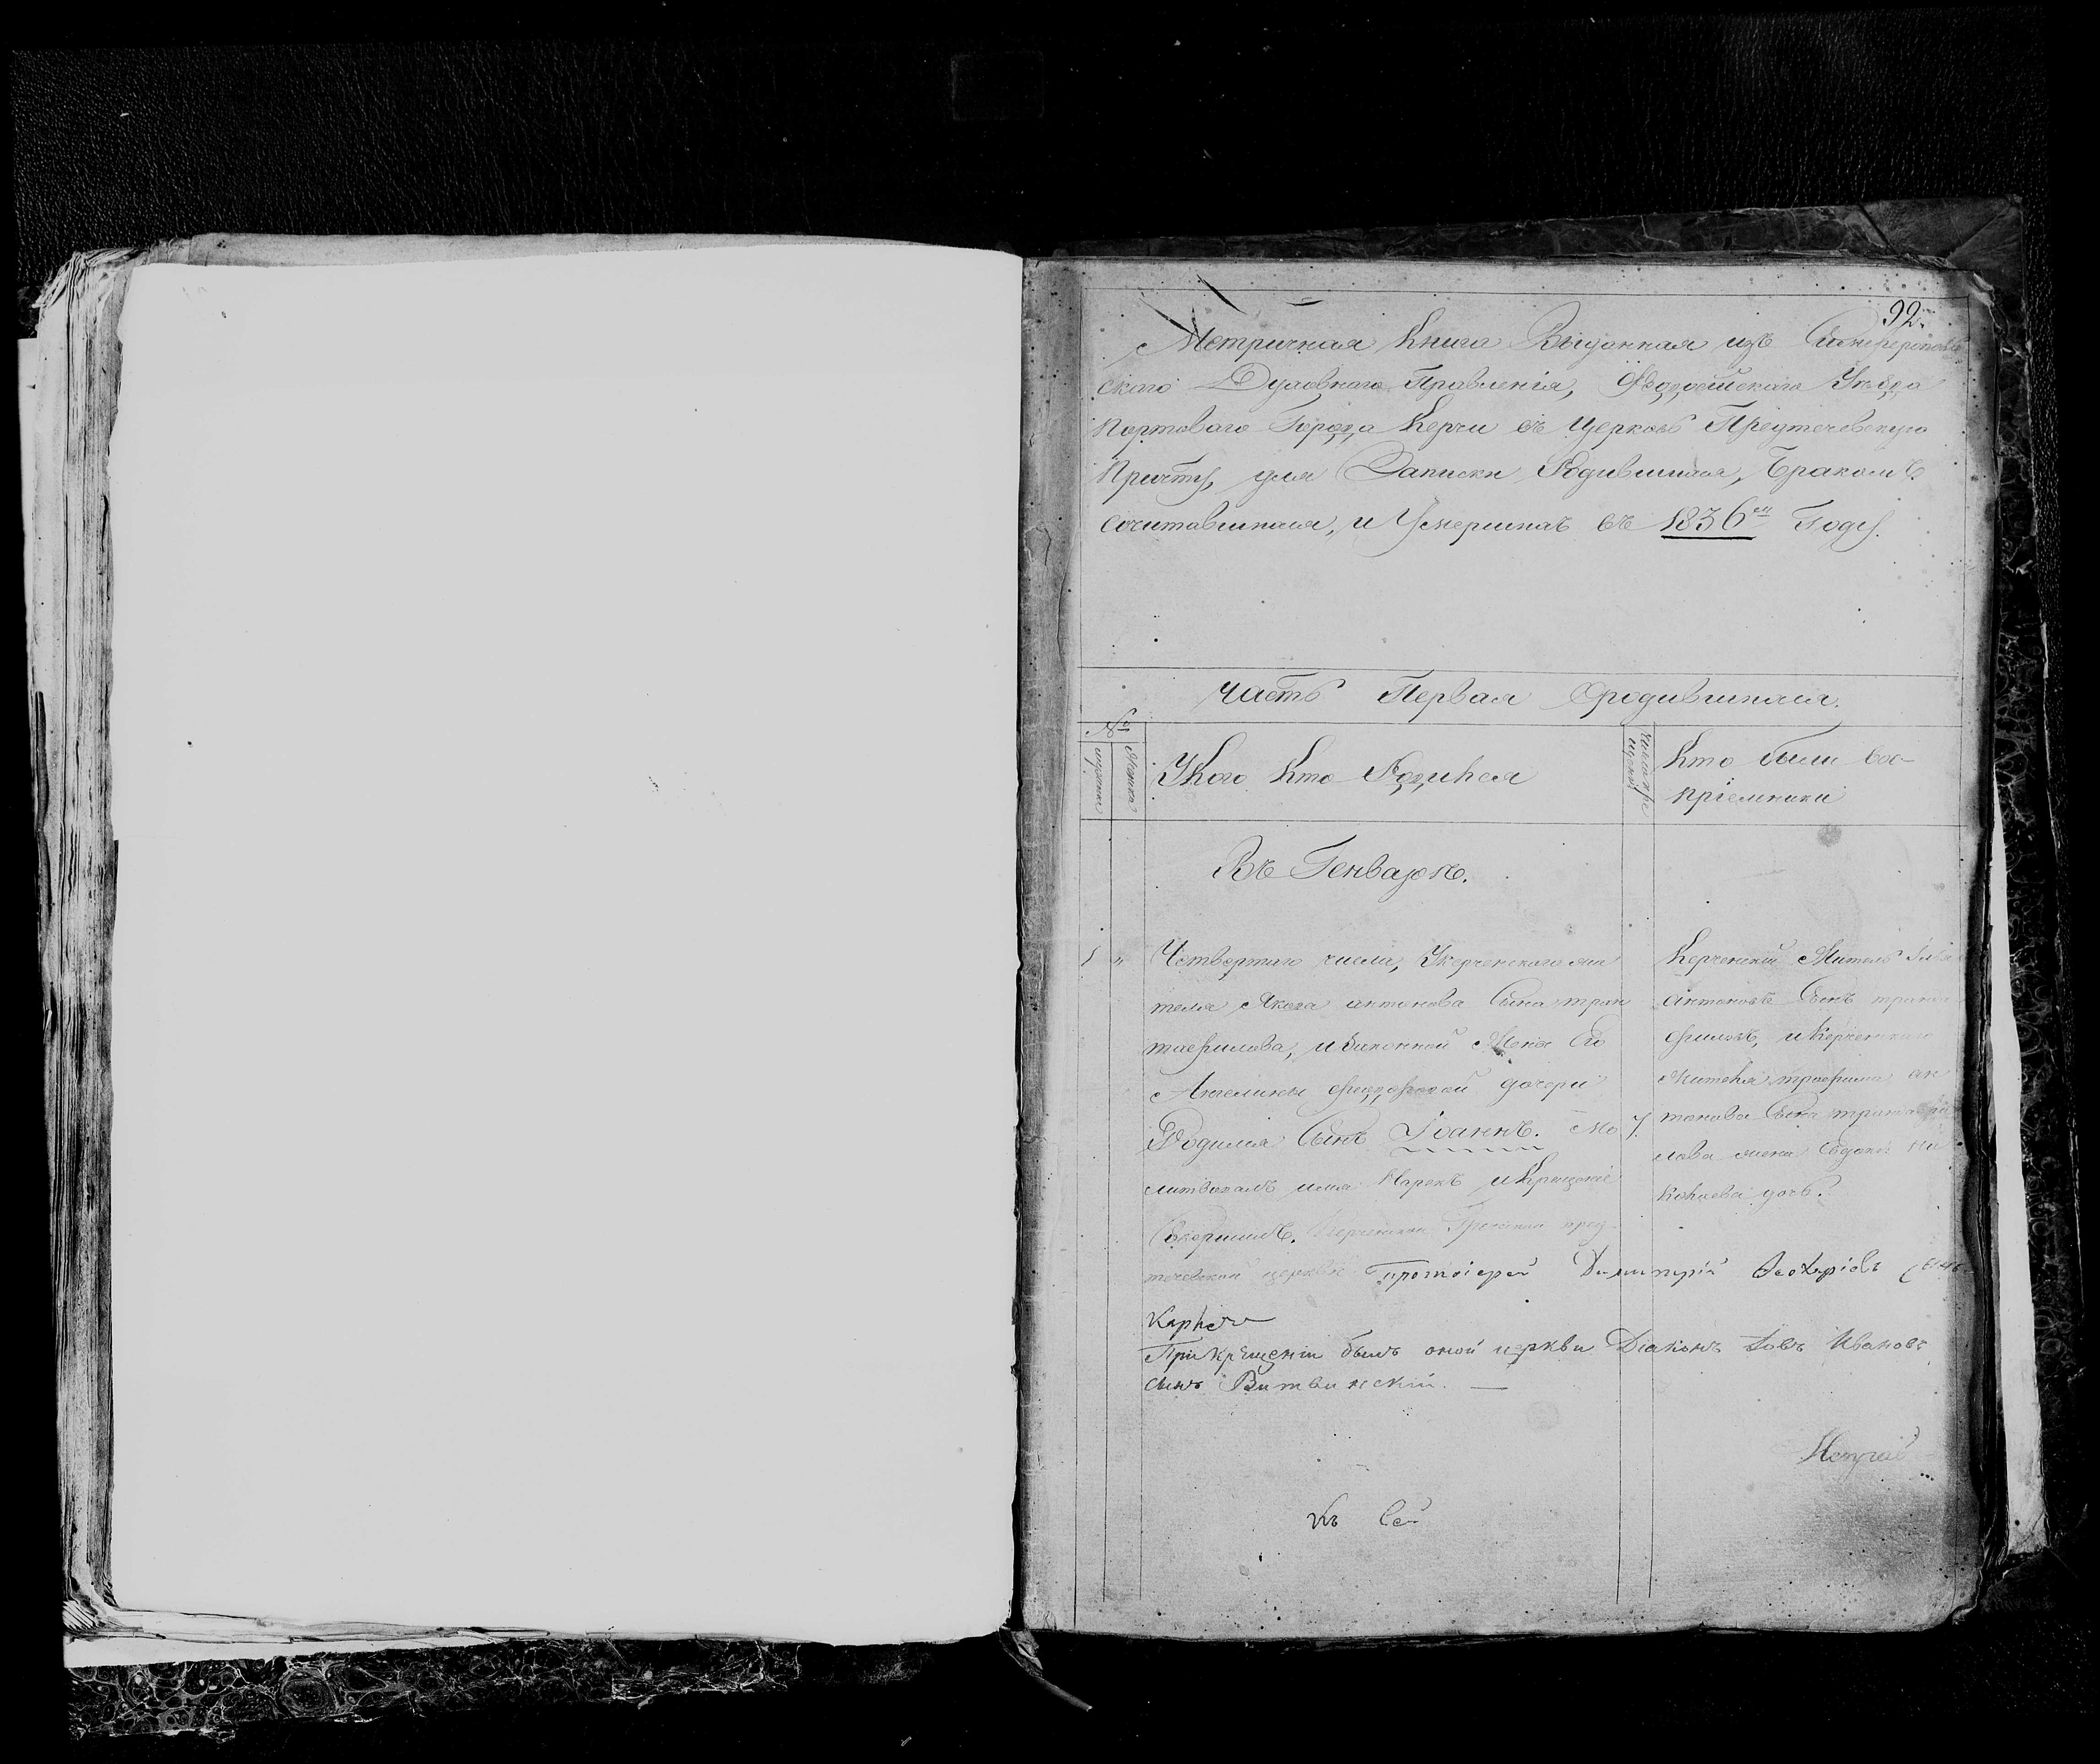 92.
Метричная Книга Выданная изъ Симферополь
скаго Духовнаго Правленія, Феодосійскаго Уѣзда
Портоваго Города Керчи въ Церковь Предтечевскую
Причту, для Записки Родившихся, Бракомъ
сочитавшихся, и Умершихъ въ 1836м Году.
Часть Первая О родившихся.
№
мужеска
Женска
У Кого Кто Родился
Кто были вос-
пріемники
Въ Генварѣ.
1 " Четвертаго числа, Укерченскаго жи
теля Якова антонова Сына тран
тафилова, и Законной Жены Его
Ангелины дочери
Родился Сынъ Іоаннъ. Мо
литвовалъ имя Нарекъ и Крещеніе
Совершилъ, Керченской Греческой пред-
течевской церкви Протоіерей Димитрій сынъ
При крещеніи былъ оной церкви Діаконъ Іовъ Ивановъ
сынъ Витвинскій. —
7.
Керченскій Житель
антоновъ Сынъ транта
филовъ, и Керченскаго
Жителя трофима ан
тонова Сына трантафи
лова жена Ни
колаева дочь.
Къ Сей